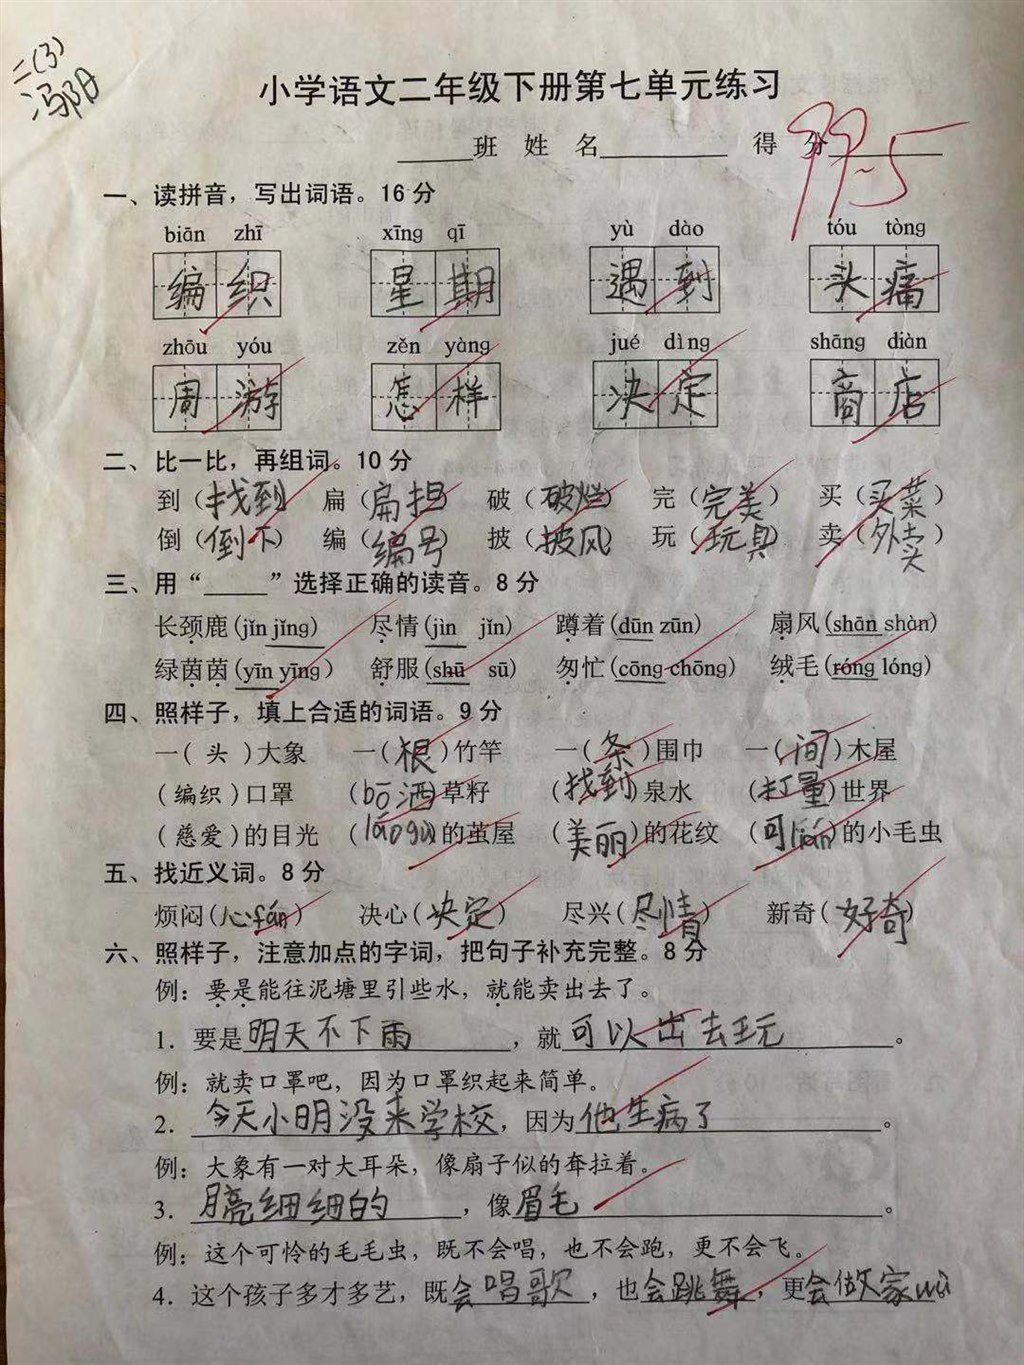 二(3)
冯阳
小学语文二年级下册第七单元练习
_____班 姓 名_________ 得 分________
99.5
一、读拼音，写出词语。16 分
biān zhī xīng qī yù dào tóu tòng
编织 星期 遇到 头痛
zhōu yóu zěn yàng jué dìng shāng diàn
周游 怎样 决定 商店
二、比一比，再组词。10 分
到（找到） 扁（扁担） 破（破烂） 完（完美） 买（买菜）
倒（倒下） 编（编号） 披（披风） 玩（玩具） 卖（外卖）
三、用“_____”选择正确的读音。8 分
长颈鹿(jǐn jǐng) 尽情(jìn jǐn) 蹲着(dūn zūn) 扇风(shān shàn)
绿茵茵(yīn yīng) 舒服(shū sū) 匆忙(cōng chōng) 绒毛(róng lóng)
四、照样子，填上合适的词语。9 分
一( 头 )大象 一(根)竹竿 一(条)围巾 一(间)木屋
(编织)口罩 (bō洒)草籽 (找到)泉水 (打量)世界
(慈爱)的目光 的茧屋 (美丽)的花纹 (可lián)的小毛虫
五、找近义词。8 分
烦闷(心fán) 决心(决定) 尽兴(尽情) 新奇(好奇)
六、照样子，注意加点的字词，把句子补充完整。8 分
例：要是能往泥塘里引些水，就能卖出去了。
1. 要是明天不下雨，就可以出去玩。
例：就卖口罩吧，因为口罩织起来简单。
2. 今天小明没来学校，因为他生病了。
例：大象有一对大耳朵，像扇子似的耷拉着。
3. 细细的，像眉毛。
例：这个可怜的毛毛虫，既不会唱，也不会跑，更不会飞。
4. 这个孩子多才多艺，既会唱歌，也会跳舞，更会做家wù